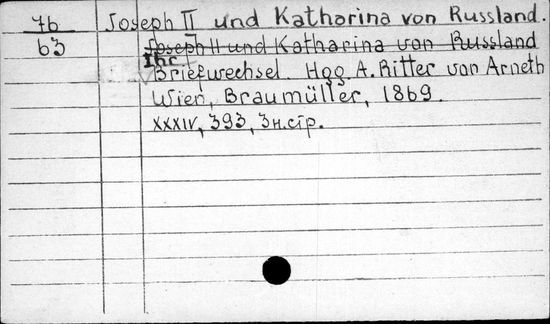 76 Joseph II und Katharina von Russland.
63 Joseph II und Katharina von Russland
Ihr.
Briefwechsel. Hgg. A. Ritter von Arneth
Wien, Braumüller, 1869.
XXXIV, 393, 3 н.стр.